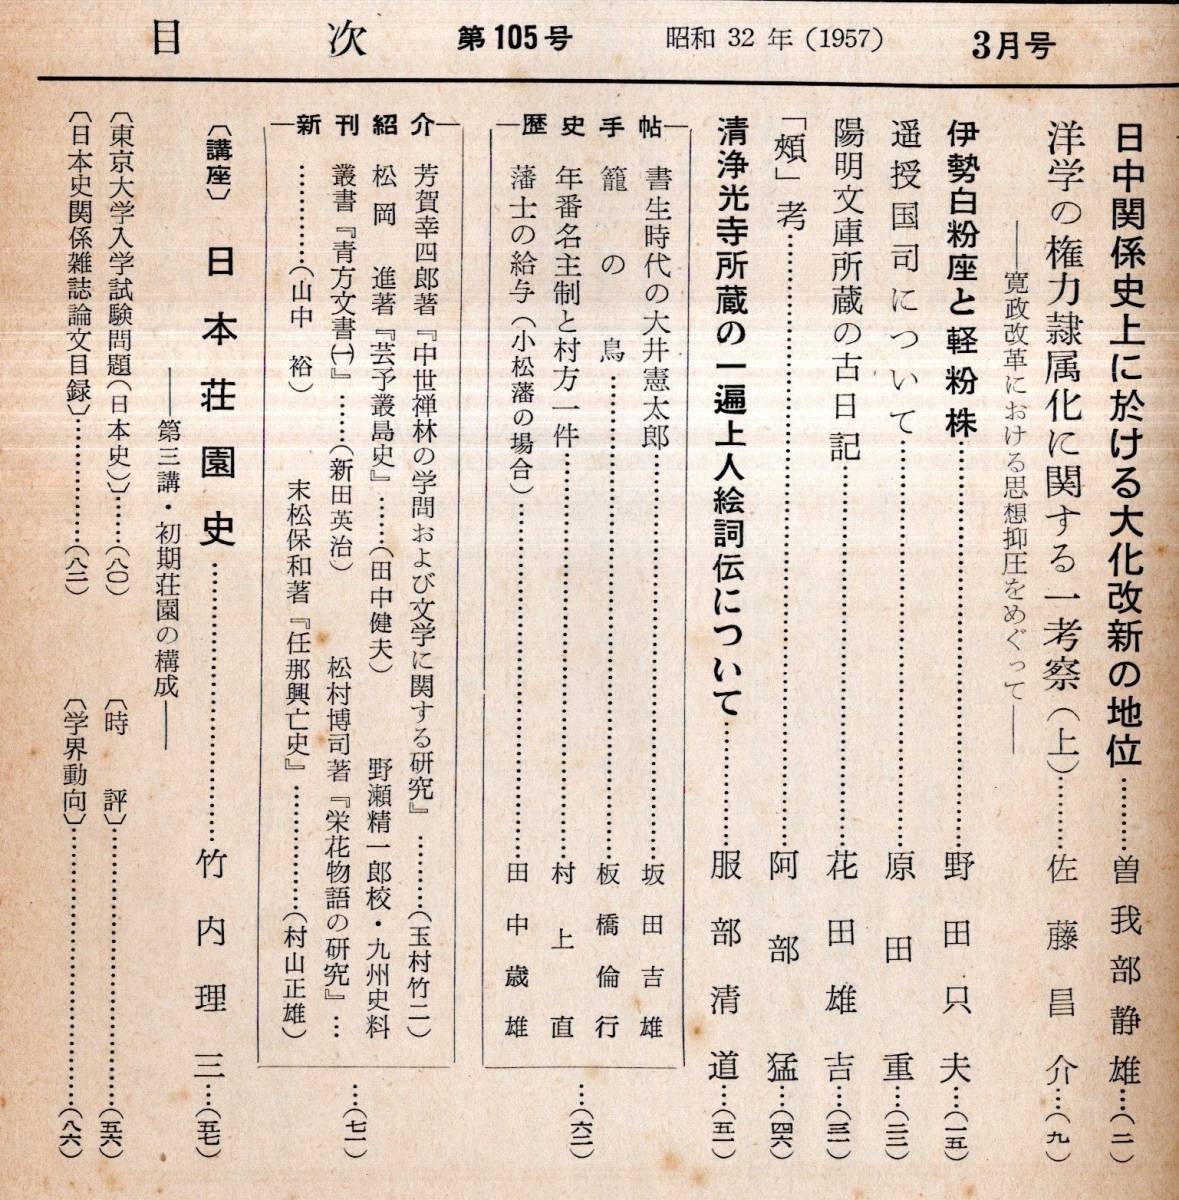 目次 第105号 昭和32年(1957) 3月号
日中関係史上に於ける大化改新の地位………曽我部静雄…(二)
洋学の権力隷属化に関する一考察(上)………佐藤昌介…(九)
――寛政改革における思想抑圧をめぐって――
伊勢白粉座と軽粉株………野田只夫…(一五)
遥授国司について………原田重…(二三)
陽明文庫所蔵の古日記………花田雄吉…(三一)
「頰」考………阿部猛…(四六)
清浄光寺所蔵の一遍上人絵詞伝について………服部清道…(五一)
歴史手帖
書生時代の大井憲太郎………坂田吉雄
籠の鳥………板橋倫行
年番名主制と村方一件………村上直
藩士の給与(小松藩の場合)………田中歳雄
…(六二)
新刊紹介
芳賀幸四郎著『中世禅林の学問および文学に関する研究』………(玉村竹二)
松岡進著『芸予叢島史』……(田中健夫) 野瀬精一郎校・九州史料
叢書『青方文書(一)』……(新田英治) 松村博司著『栄花物語の研究』…
…………(山中裕) 末松保和著『任那興亡史』…………(村山正雄)
…(七一)
〔講座〕日本荘園史………竹内理三…(五七)
――第三講・初期荘園の構成――
〔東京大学入学試験問題(日本史)〕……(八〇) 〔時評〕………(五六)
〔日本史関係雑誌論文目録〕………(八二) 〔学界動向〕………(八六)